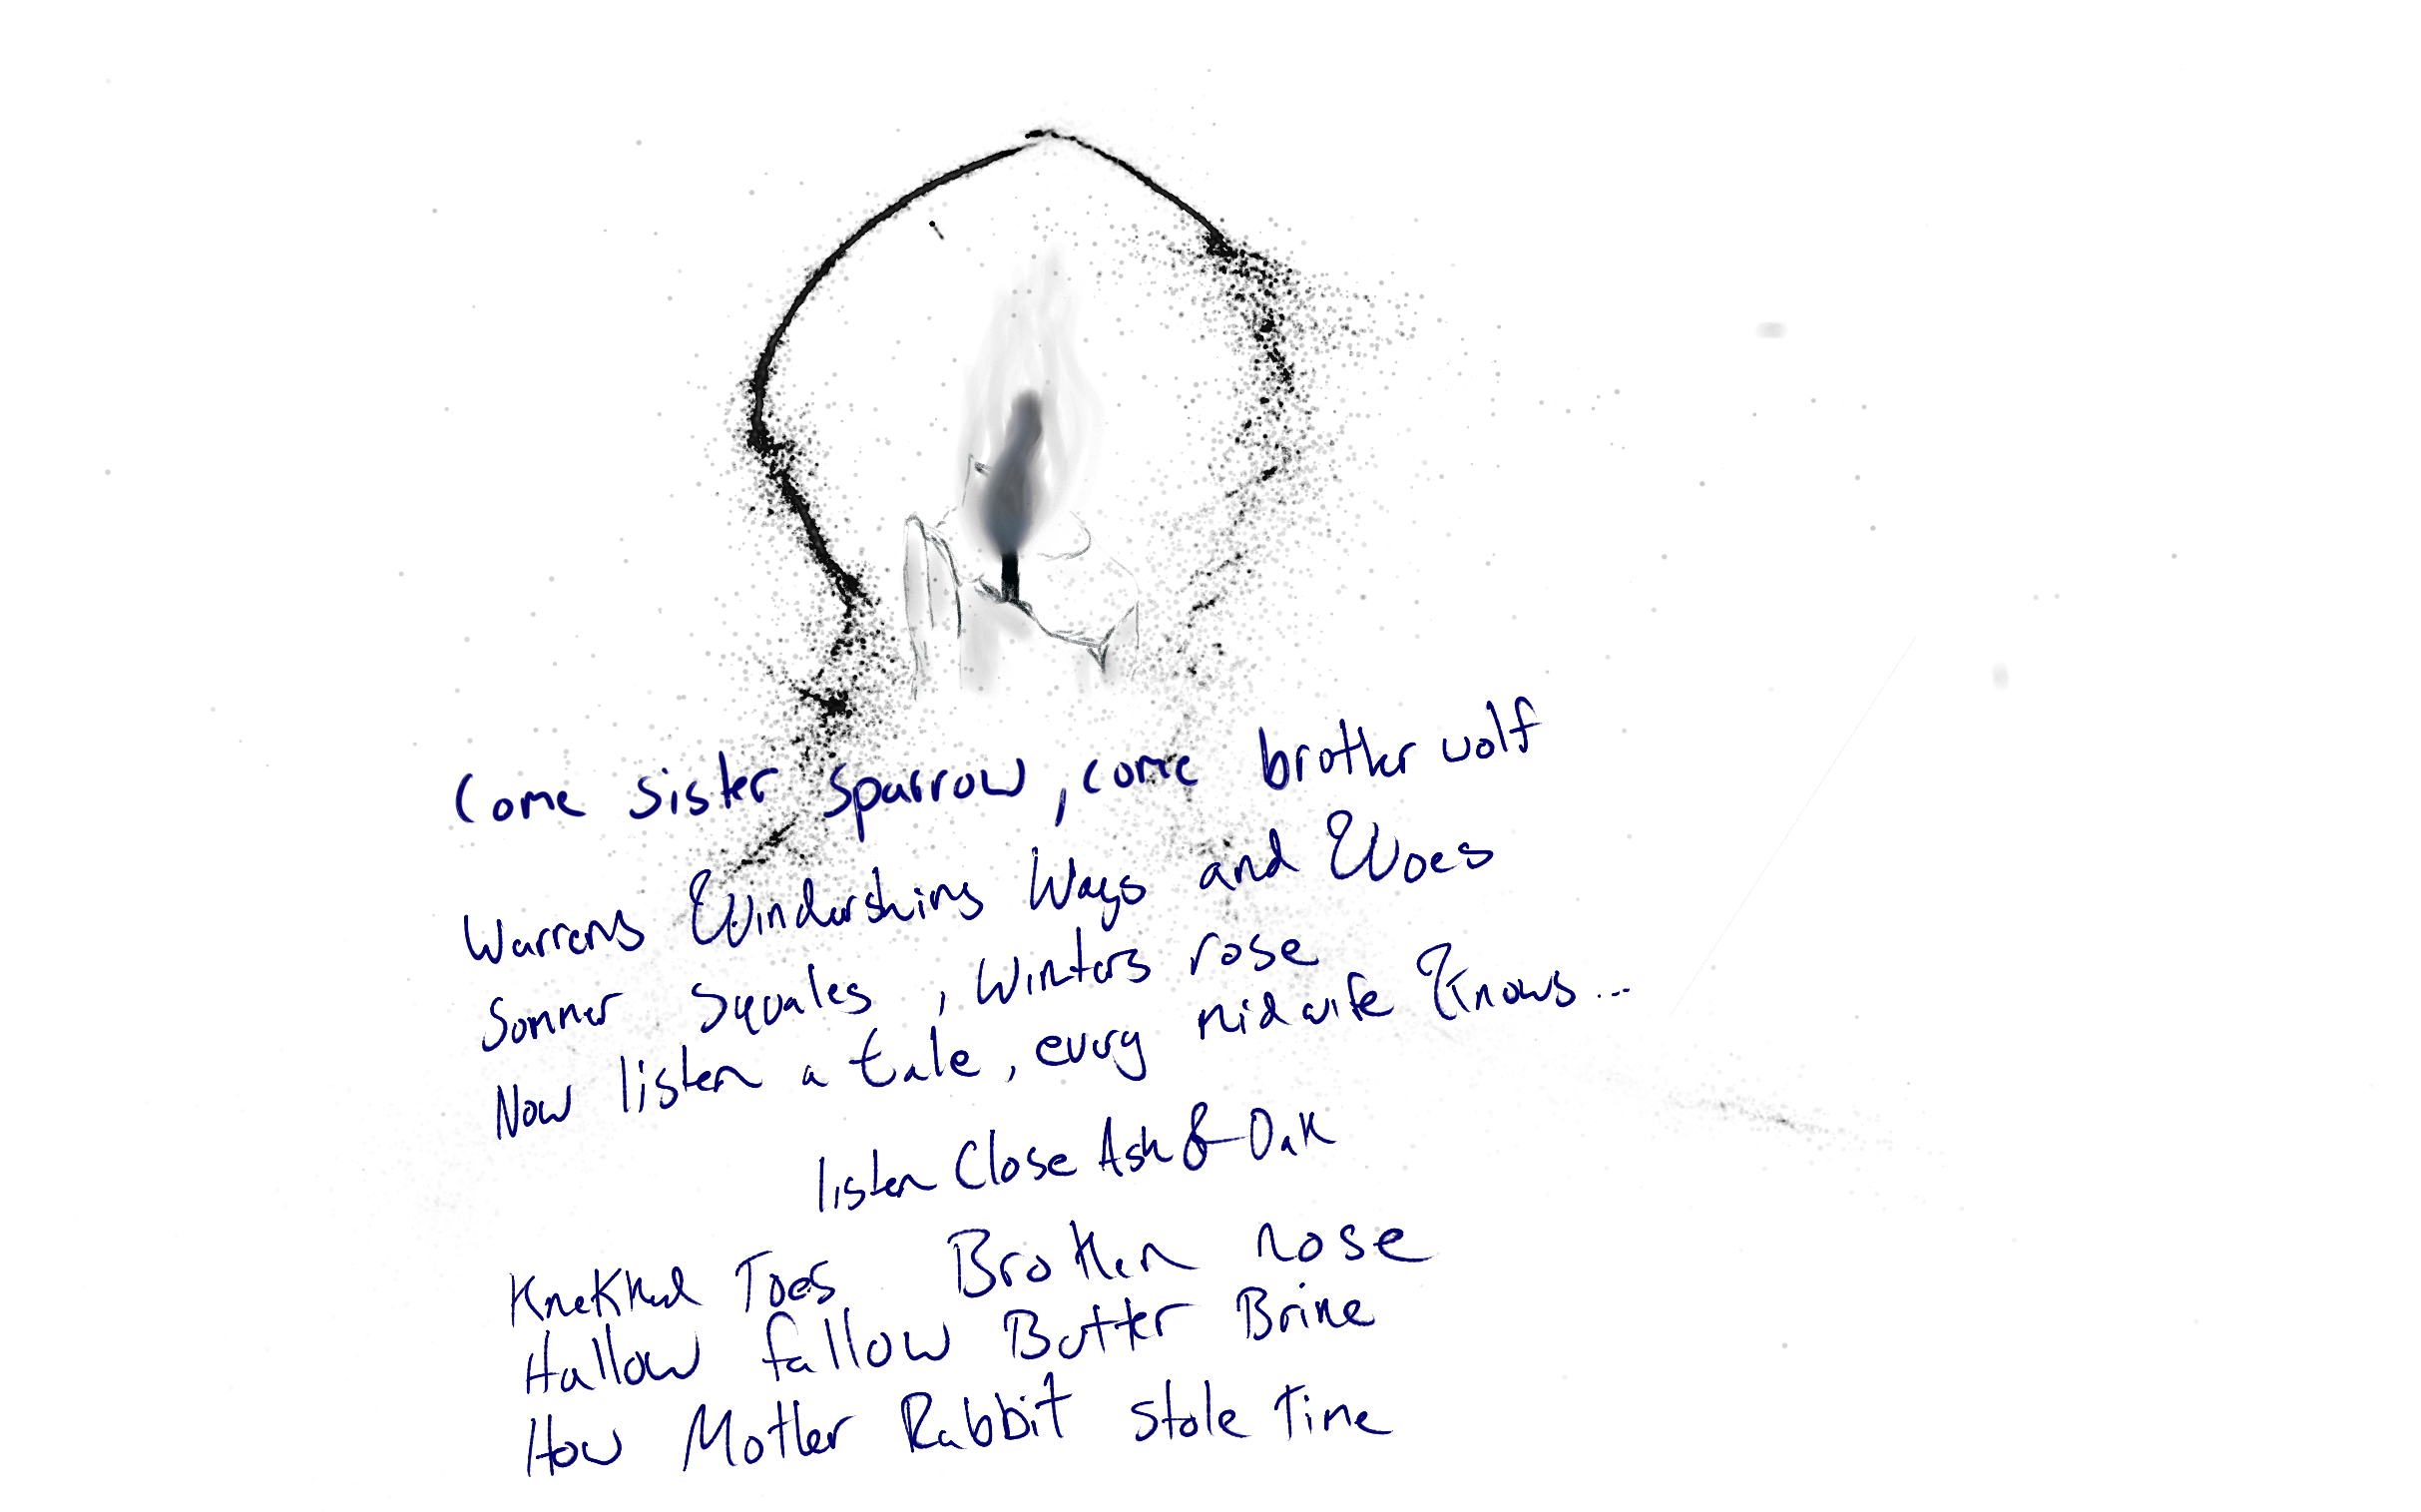 Come sister sparrow, come brother wolf
Warrens Windershins Ways and Woes
Sommer Squales, Winters rose
Now listen a tale, every midwife Knows...
listen Close Ash & Oak
Toes Brothen nose
Hallow fallow Butter Brine
How Mother Rabbit stole Time